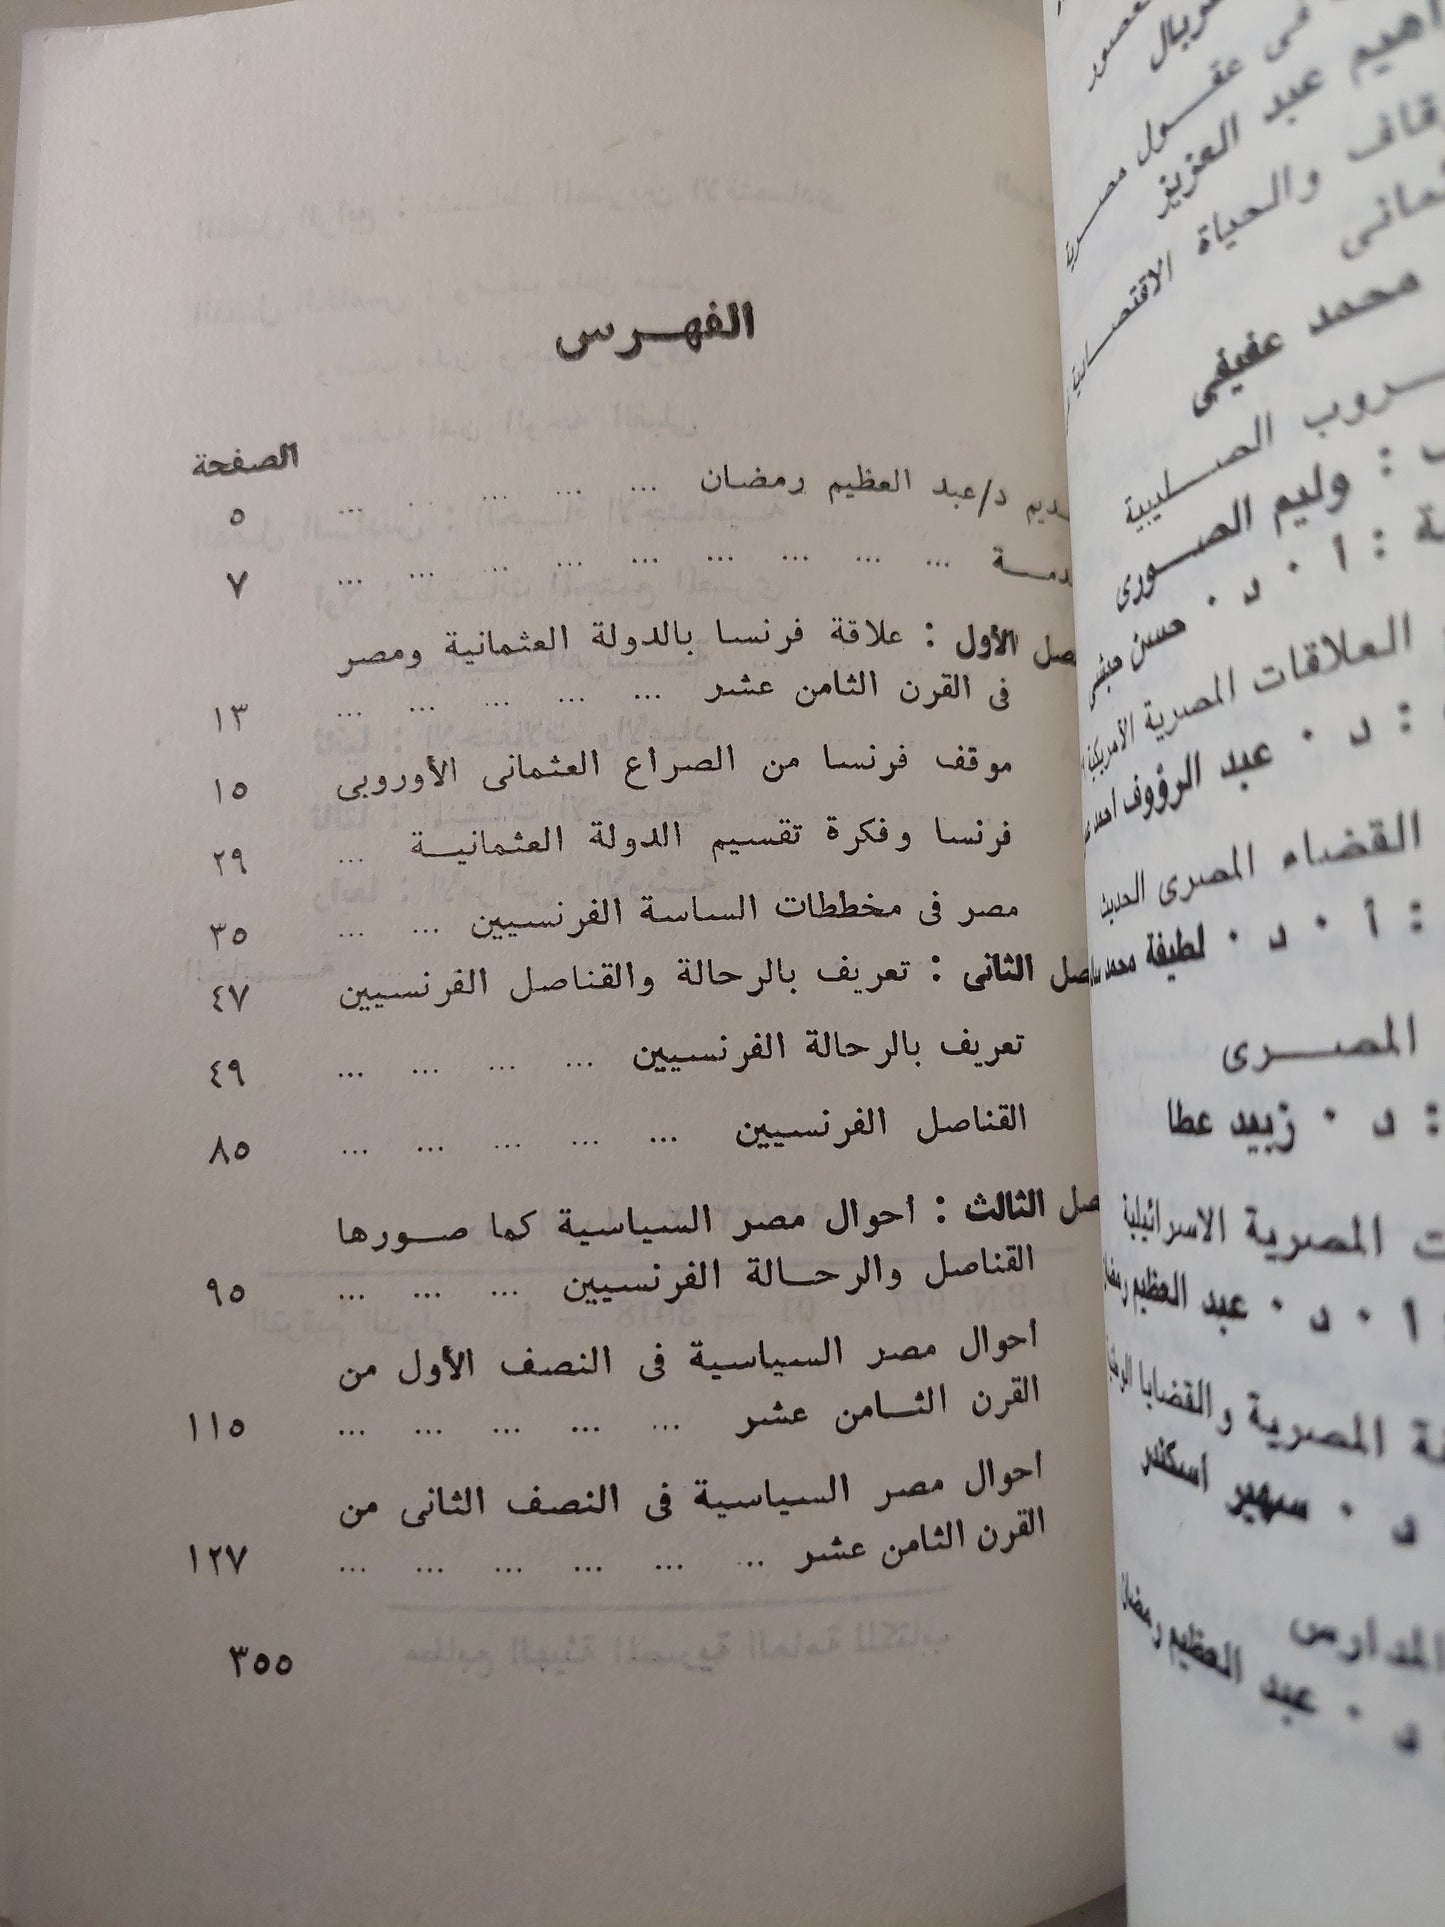 الفهرس
الصفحة
ديم د/عبد العظيم رمضان ... ... ... ... ... ٥
دمة ... ... ... ... ... ... ... ... ... ٧
صل الأول : علاقة فرنسا بالدولة العثمانية ومصر
فى القرن الثامن عشر ... ... ... ... ... ١٣
موقف فرنسا من الصراع العثمانى الأوروبى ١٥
فرنسا وفكرة تقسيم الدولة العثمانية ... ٢٩
مصر فى مخططات الساسة الفرنسيين ... ... ٣٥
صل الثانى : تعريف بالرحالة والقناصل الفرنسيين ٤٧
تعريف بالرحالة الفرنسيين ... ... ... ... ٤٩
القناصل الفرنسيين ... ... ... ... ... ٨٥
صل الثالث : أحوال مصر السياسية كما صورها
القناصل والرحالة الفرنسيين ... ... ... ٩٥
أحوال مصر السياسية فى النصف الأول من
القرن الثامن عشر ... ... ... ... ... ١١٥
أحوال مصر السياسية فى النصف الثانى من
القرن الثامن عشر ... ... ... ... ... ... ١٢٧
٣٥٥
فى عقول مصرية
عبد العزيز
والحياة الاقتصادية
محمد عفيفى
الصليبية
: وليم الصورى
: أ . د . حسن حبشى
العلاقات المصرية الأمريكية
: د . عبد الرؤوف أحمد
القضاء المصرى الحديث
: أ . د . لطيفة محمد سا
المصرى
: د . زبيد عطا
المصرية الاسرائيلية
أ . د . عبد العظيم رمضان
المصرية والقضايا الوطنية
د . سهير اسكندر
المدارس
د . عبد العظيم رمضان